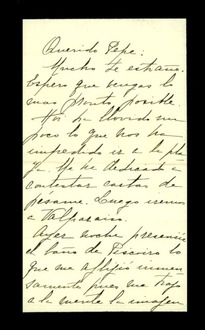 Querido Pepe:
Mucho te extraño.
Espero que vengas lo
mas pronto posible.
Hoy ha llovido un
poco lo que nos ha
impedido ir a la pla
ya. Me he dedicado a
contestar cartas de
pésame. Luego iremos
a Valparaiso.
Ayer noche presencié
el baño de Piscuro lo
que me afligió inmen
samente pues me trajo
a la mente la imagen